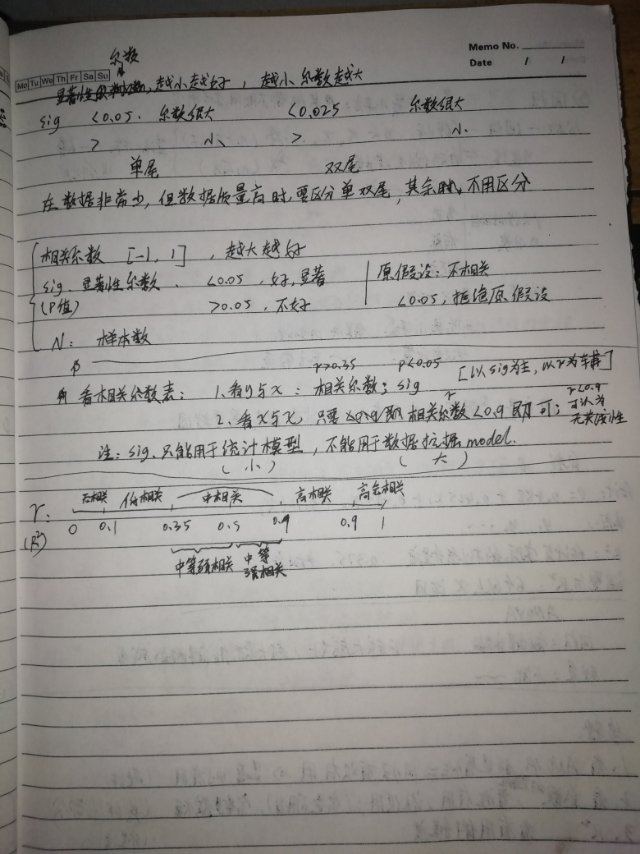 Memo No.
Mo Tu We Th Fr Sa Su
Date / /
系数
显著性 越小越好，越小系数越大
sig <0.05. 系数很大 <0.025 系数很大
> 小 > 小
单尾 双尾
在数据非常少，但数据质量高时，要区分单双尾，其余时，不用区分
相关系数 [-1, 1] ，越大越好
sig. 显著性系数 . <0.05 ，好，显著 原假设：不相关
(P值) >0.05 ，不好 <0.05，拒绝原假设
N： 样本数
r>0.35 P<0.05
看相关系数表： 1.看y与x ：相关系数；sig [以sig为主，以r为车辅]
2.看x与x，只要 即相关系数<0.9即可； r<0.9 可认为 无共线性
注：sig.只能用于统计模型，不能用于数据挖掘model.
(小) (大)
无相关 低相关 中相关 高相关 高全相关
r: 0 0.1 0.35 0.5 0.9 1
(R²)
中等弱相关 中等强相关